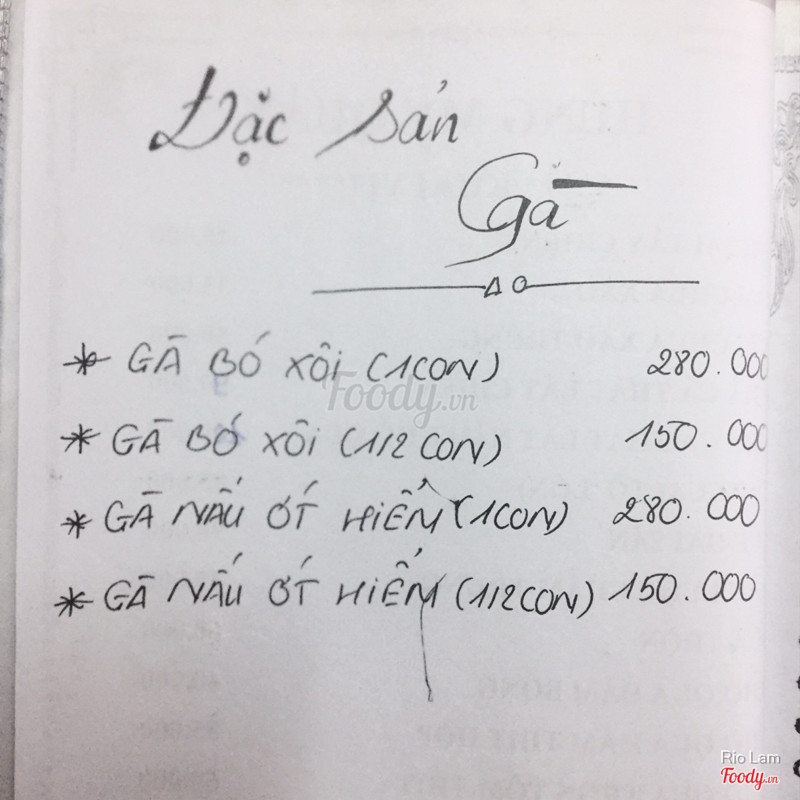 Đặc sản
Gà
* GÀ BÓ XÔI (1CON) 280.000
* GÀ BÓ XÔI (1/2 CON) 150.000
* GÀ NẤU ỚT HIỂM (1CON) 280.000
* GÀ NẤU ỚT HIỂM (1/2CON) 150.000
Foody.vn
Rio Lam
Foody.vn